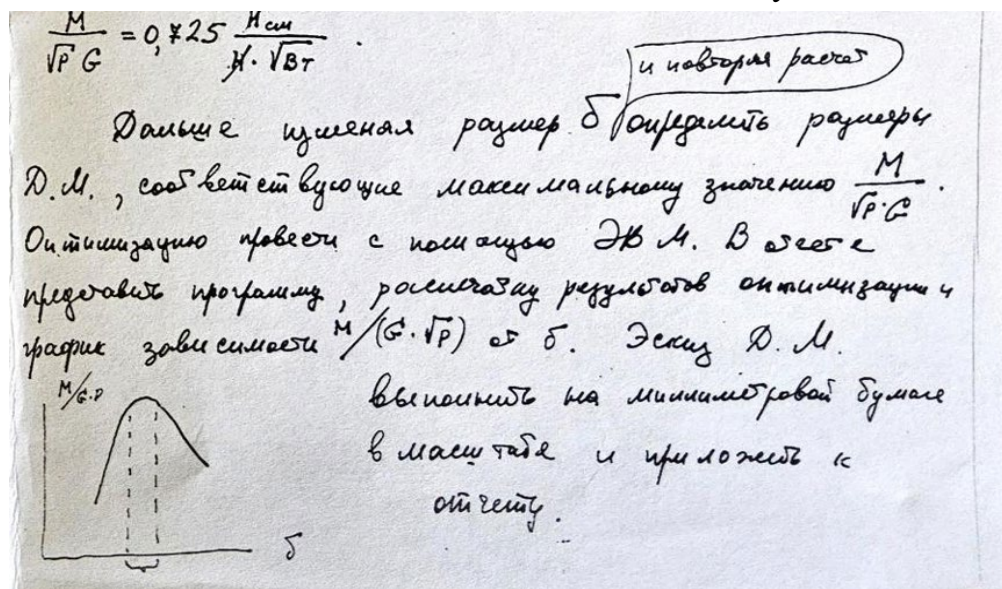 M/(√P G) = 0,725 Н см/(Н · √Вт) .
и повторяя расчет
Дальше изменяя размер б определить размеры
Д.М., соответствующие максимальному значению M/(√P·G) .
Оптимизацию провести с помощью ЭВМ. В отчете
представить программу, распечатку результатов оптимизации и
график зависимости M/(G·√P) от б. Эскиз Д.М.
выполнить на миллиметровой бумаге
в масштабе и приложить к
отчету.
M/G·P
б